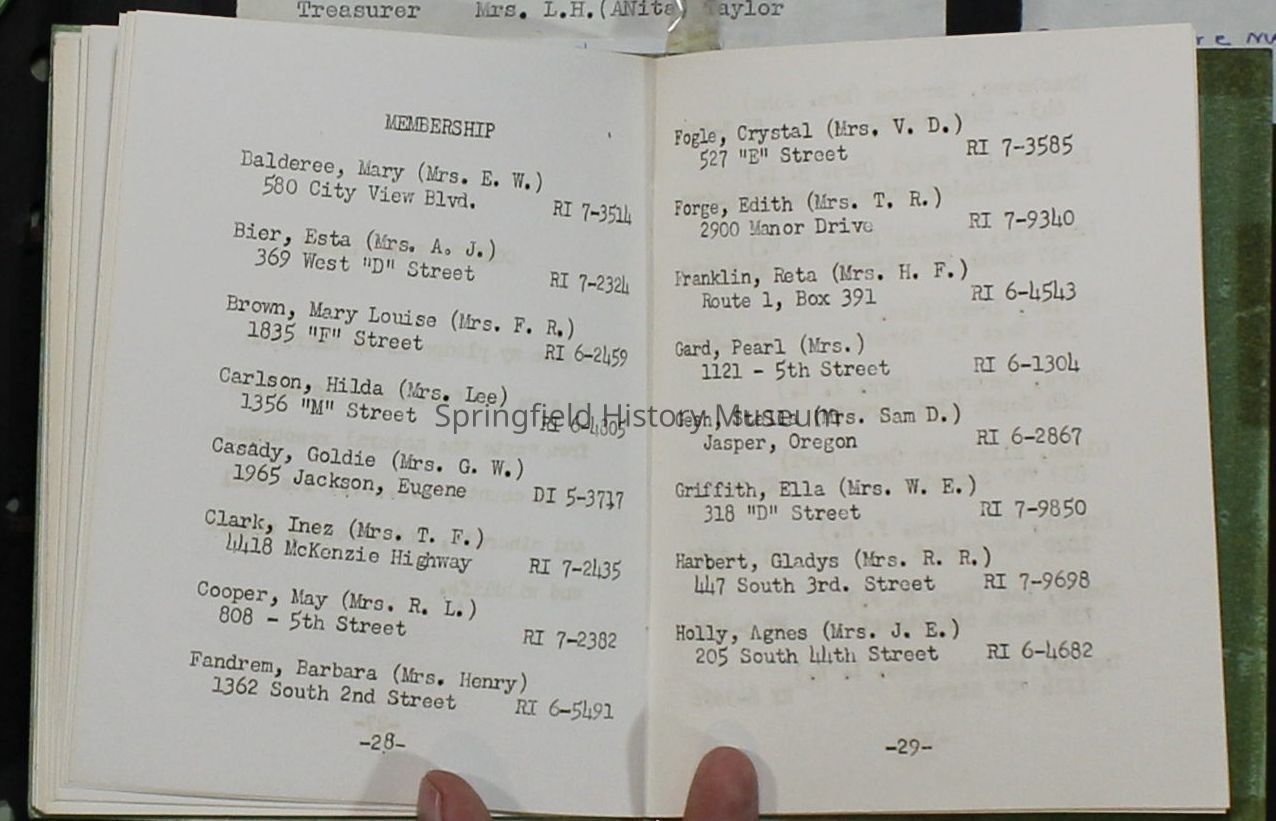 Treasurer Mrs. L.H.(ANita) Taylor
MEMBERSHIP
Balderee, Mary (Mrs. E. W.)
580 City View Blvd. RI 7-3514
Bier, Esta (Mrs. A. J.)
369 West "D" Street RI 7-2324
Brown, Mary Louise (Mrs. F. R.)
1835 "F" Street RI 6-2459
Carlson, Hilda (Mrs. Lee)
1356 "M" Street RI 6-4805
Casady, Goldie (Mrs. G. W.)
1965 Jackson, Eugene DI 5-3717
Clark, Inez (Mrs. T. F.)
4418 McKenzie Highway RI 7-2435
Cooper, May (Mrs. R. L.)
808 - 5th Street RI 7-2382
Fandrem, Barbara (Mrs. Henry)
1362 South 2nd Street RI 6-5491
-28-
Fogle, Crystal (Mrs. V. D.)
527 "E" Street RI 7-3585
Forge, Edith (Mrs. T. R.)
2900 Manor Drive RI 7-9340
Franklin, Reta (Mrs. H. F.)
Route 1, Box 391 RI 6-4543
Gard, Pearl (Mrs.)
1121 - 5th Street RI 6-1304
(Mrs. Sam D.)
Jasper, Oregon RI 6-2867
Griffith, Ella (Mrs. W. E.)
318 "D" Street RI 7-9850
Harbert, Gladys (Mrs. R. R.)
447 South 3rd. Street RI 7-9698
Holly, Agnes (Mrs. J. E.)
205 South 44th Street RI 6-4682
-29-
Springfield History Museum